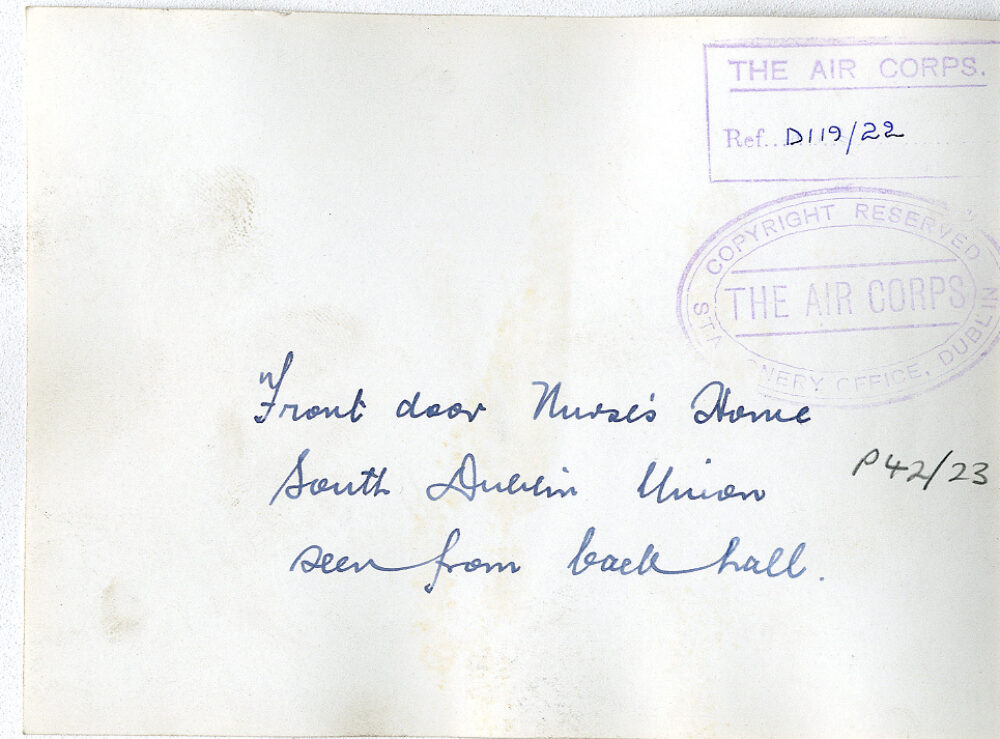 THE AIR CORPS.
Ref...D119/22
COPYRIGHT RESERVED
THE AIR CORPS
STA NERY OFFICE, DUBLIN
Front door Nurse's Home
South Dublin Union
P42/23
seen from back hall.